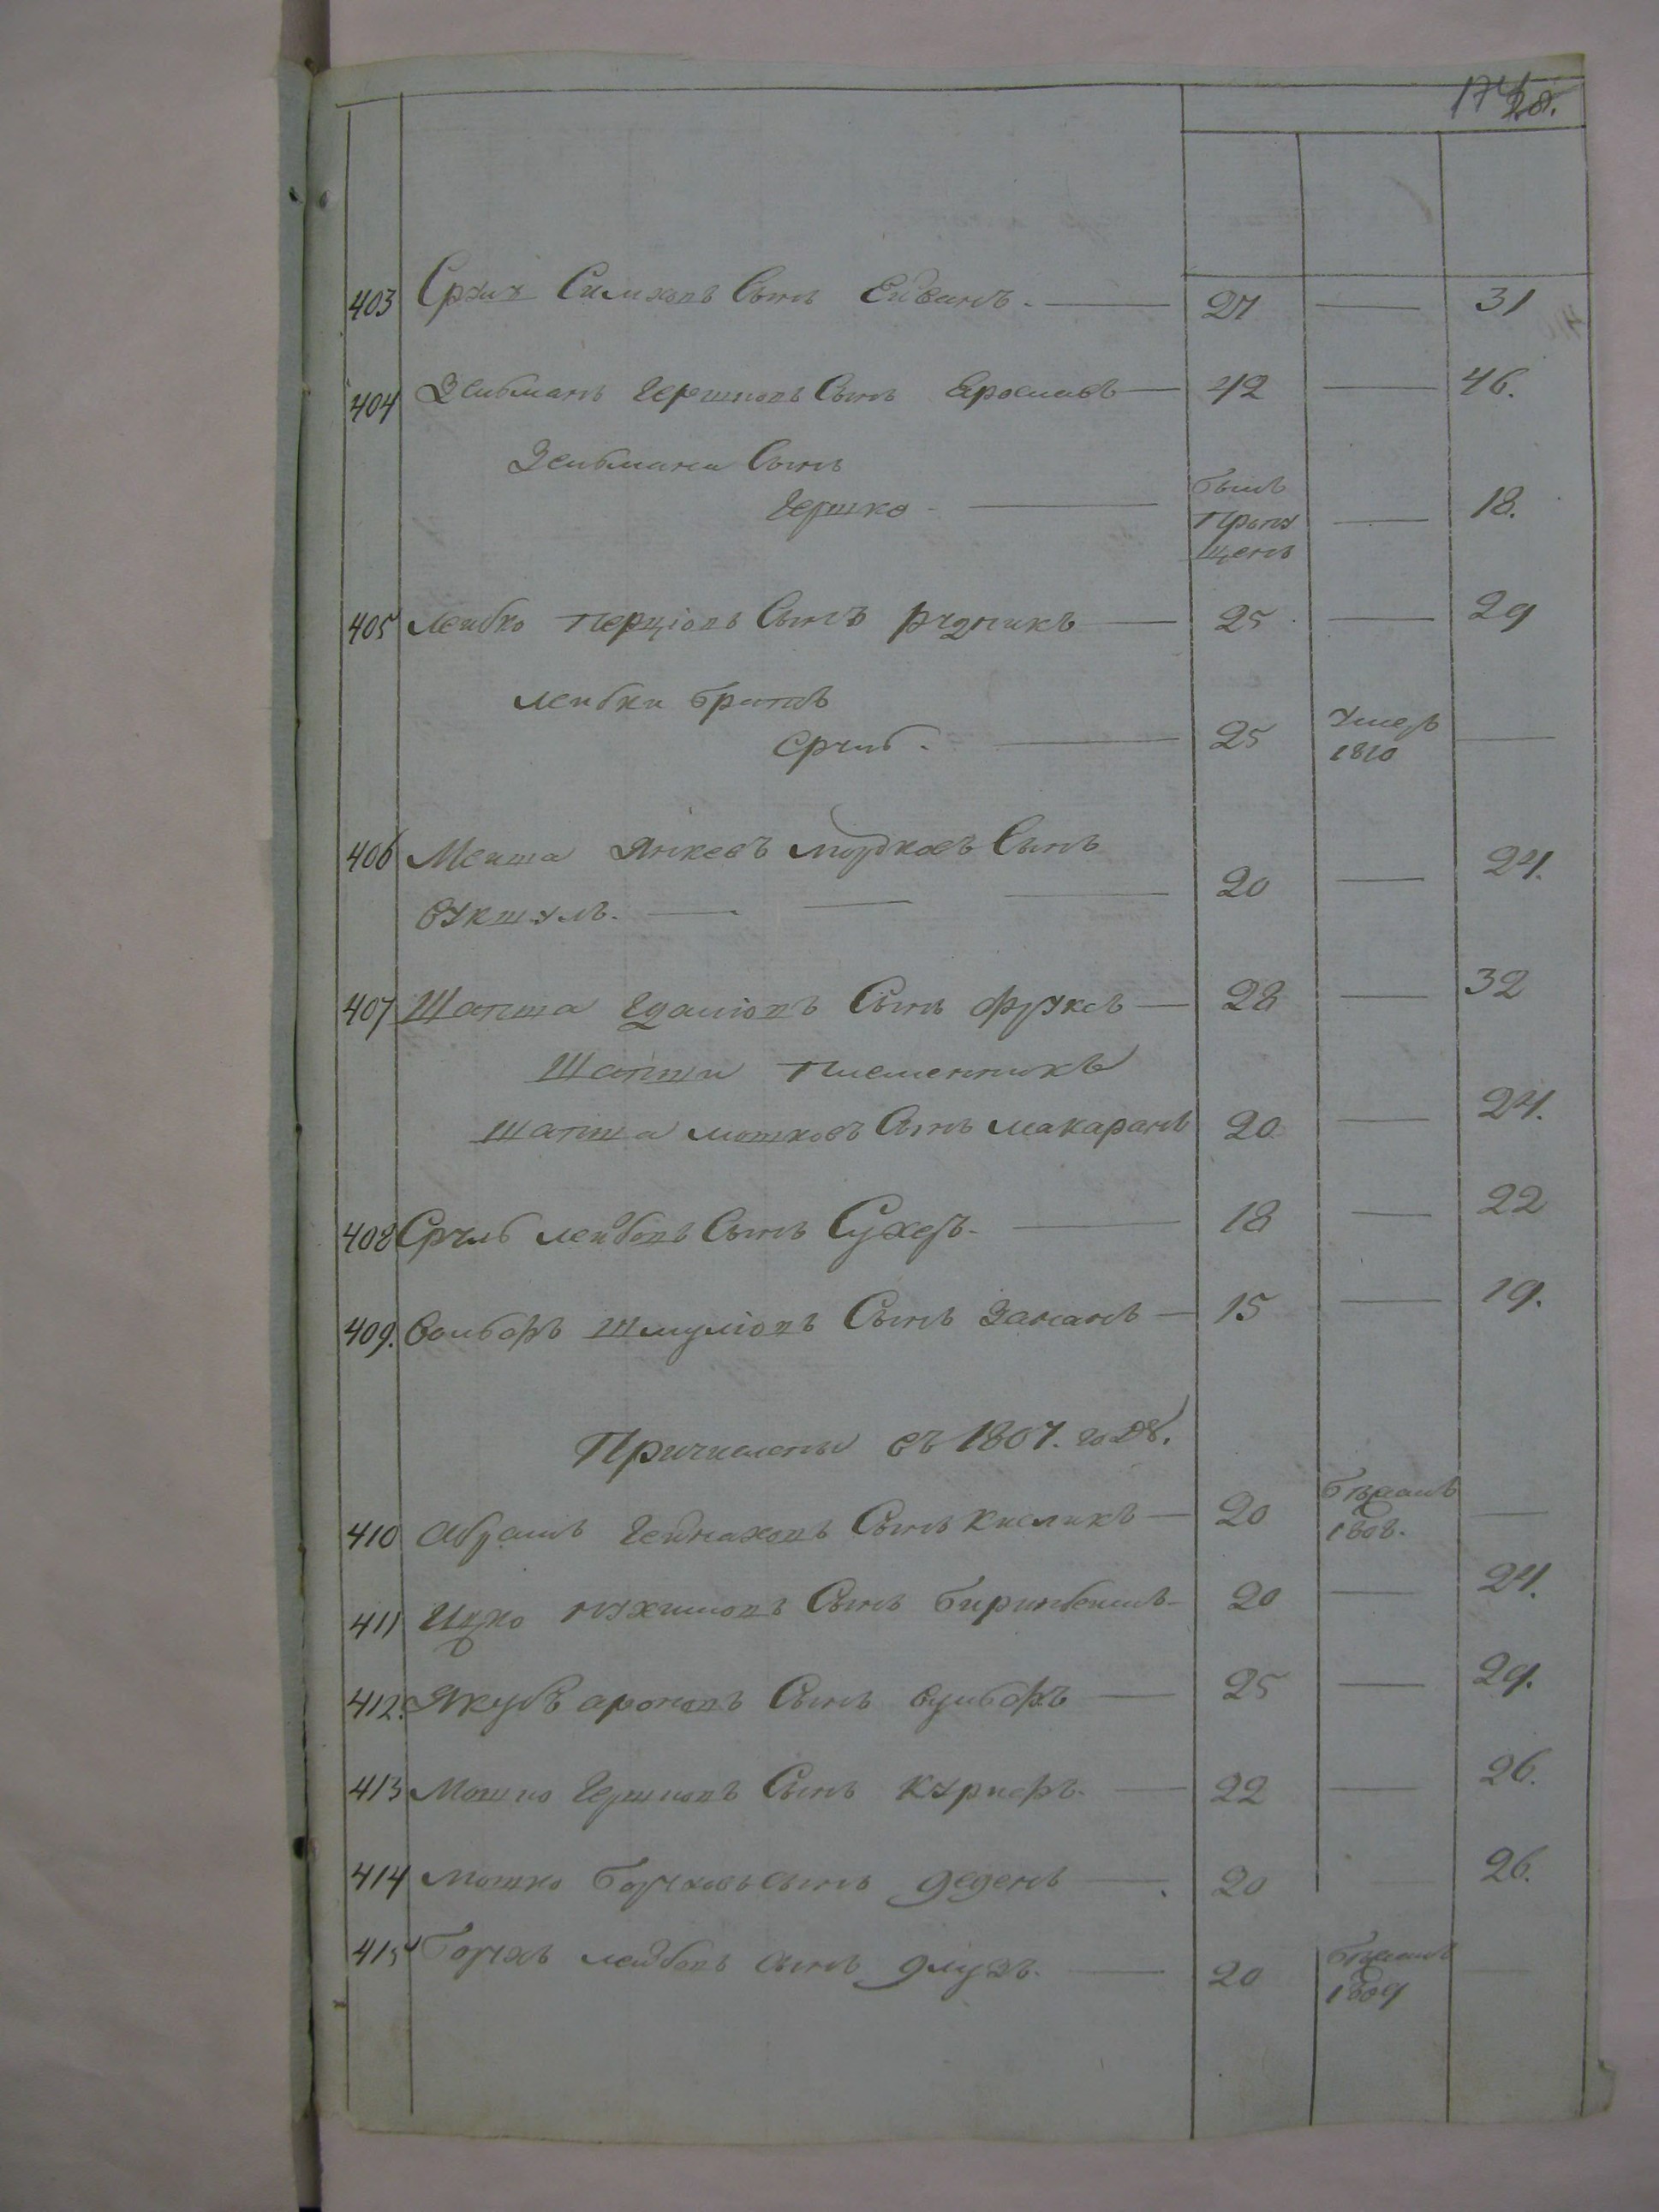 403 Сруль Симховъ Сынъ — 27 — 31
404 Зельманъ Гершковъ Сынъ Ерославъ — 42 — 46.
Зельмана Сынъ
Гершко — былъ пропущенъ — 18.
405 Лейбко Перціовъ Сынъ Рудникъ — 25 — 29
Лейбки братъ
Сруль. — 25 Умеръ 1810 —
406 Меиша Янкевъ Мордковъ Сынъ
Вукшулъ. — 20 — 24.
407 Шапша Гдаліовъ Сынъ Фуксъ — 28 — 32
Шапши племенникъ
Шапша Мошковъ Сынъ Макаранъ 20 — 24.
408 Сруль Лейбовъ Сынъ Сухеръ. — 18 — 22
409. Вольфъ Шмуліовъ Сынъ Заканъ — 15 — 19.
Причислены въ 1807. годѣ.
410 Абрамъ Геинаховъ Сынъ Кисликъ — 20 бѣжалъ 1808. —
411 Ицко Нухимовъ Сынъ — 20 — 24.
412. Якубъ Ароновъ Сынъ Вульфъ — 25 — 29.
413 Мошко Гершковъ Сынъ Курнфъ. — 22 — 26.
414 Мошко Боруховъ Сынъ Деденъ — 20 — 26.
415 Борухъ Лейбовъ Сынъ — 20 бѣжалъ 1809 —